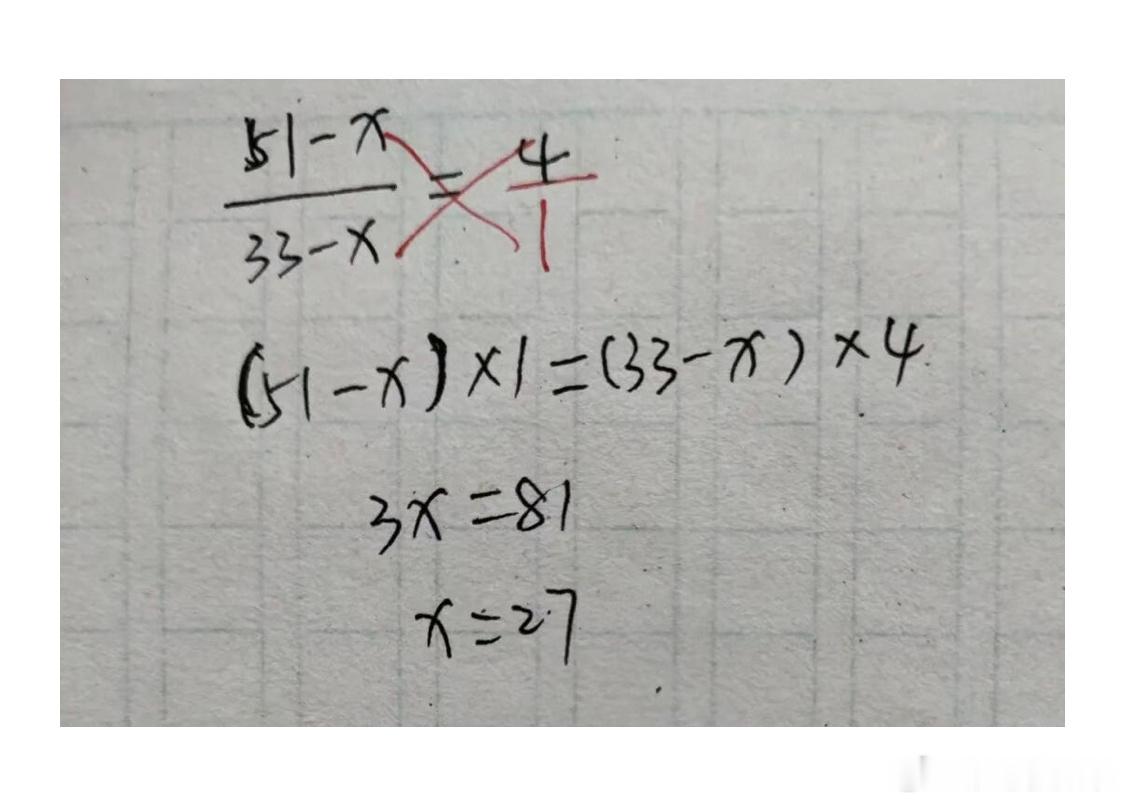 51-x/33-x = 4/1
(51-x)×1=(33-x)×4
3x=81
x=27